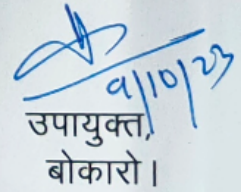 9/10/23
उपायुक्त,
बोकारो।